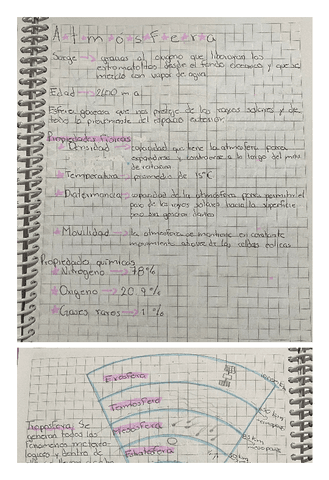 Atmósfera
Surge → gracias al oxígeno que liberaron los
estromatolitos desde el fondo oceanico y que se
mezcló con vapor de agua.
Edad → 2400 m.a
Esfera gaseosa que nos protege de los rayos solares y de
todo lo proveniente del espacio exterior.
Propiedades físicas
Densidad → capacidad que tiene la atmosfera para
expanderse y contraerse a lo largo del
de rotacion
Temperatura → promedio de 15°C
→ capacidad de la atmosfera para permitir el
paso de los rayos solares hacia la superficie
pero sin generar daños
Movilidad → la atmosfera se mantiene en constante
movimiento atraves de las celdas eolicas
Propiedades químicas
Nitrógeno → 78%
Oxigeno → 20.9%
Gases raros → 1%
Exosfera
Termosfera
Mesosfera
Troposfera: Se
generan todos los
fenomenos meteoro-
logicos y dentro de